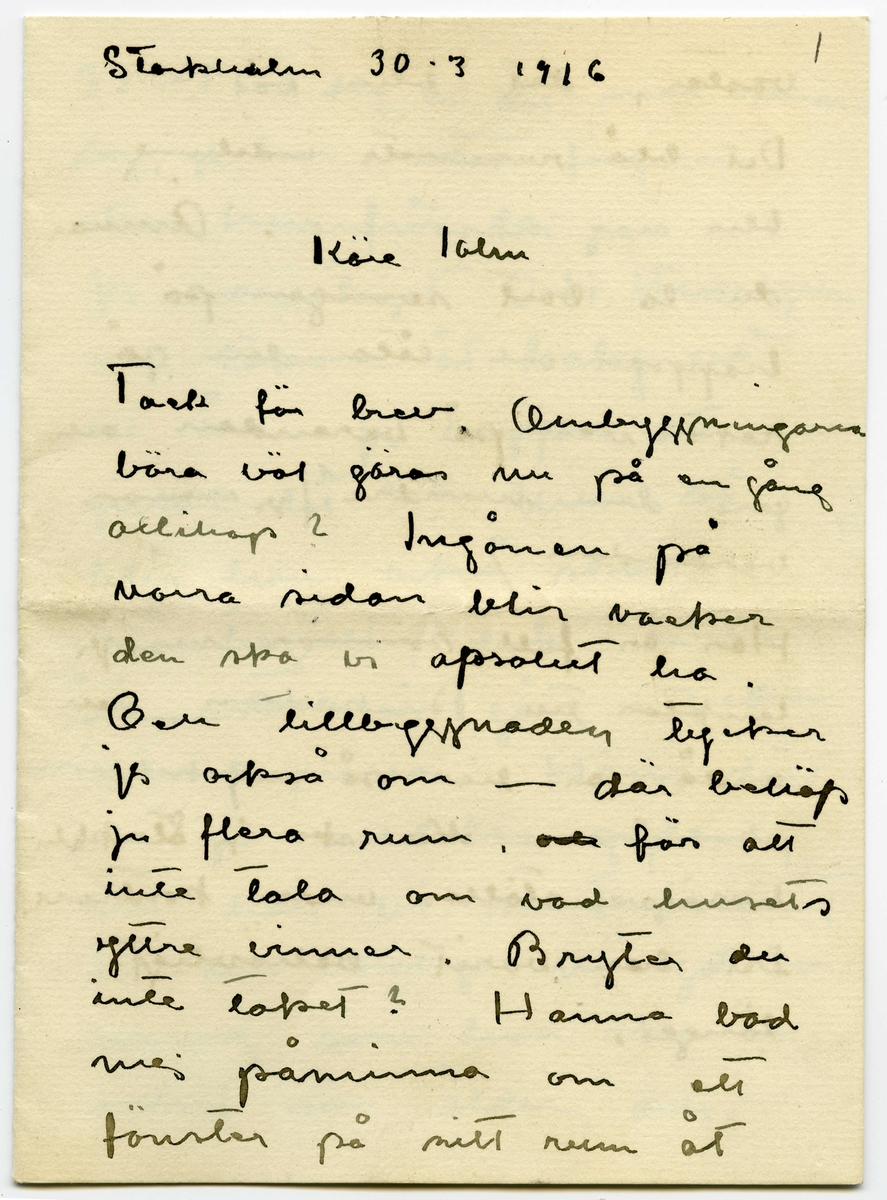 Stockholm 30.3 1916
1
Käre John
Tack för brev. Ombyggningarna
böra väl göras nu på en gång
allihop? Ingången på
norra sidan blir vacker
den ska vi apsolut ha.
Den tillbyggnaden tycker
jg också om — där behöfs
ju flera rum, för att
inte tala om vad husets
yttre vinner. Bryter du
inte taket? Hanna bad
mej påminna om ett
fönster på sitt rum åt